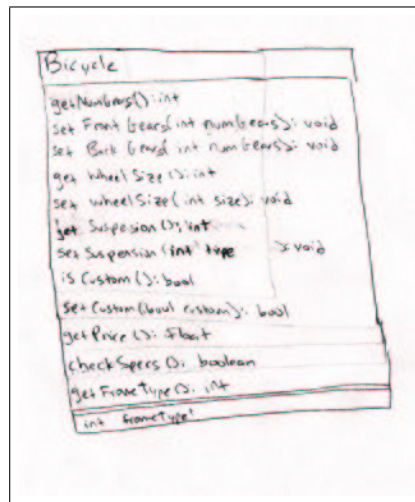 Bicycle
getNumGears(): int
set Front Gears(int numGears): void
set Back Gears(int numGears): void
get Wheel Size (): int
set wheelSize( int size): void
get Suspesion (): int
set Suspension (int type ): void
is Custom (): bool
set Custom (bool custom): bool
getPrice (): float
checkSpecs (): boolean
getFrameType(): int
int frameType;